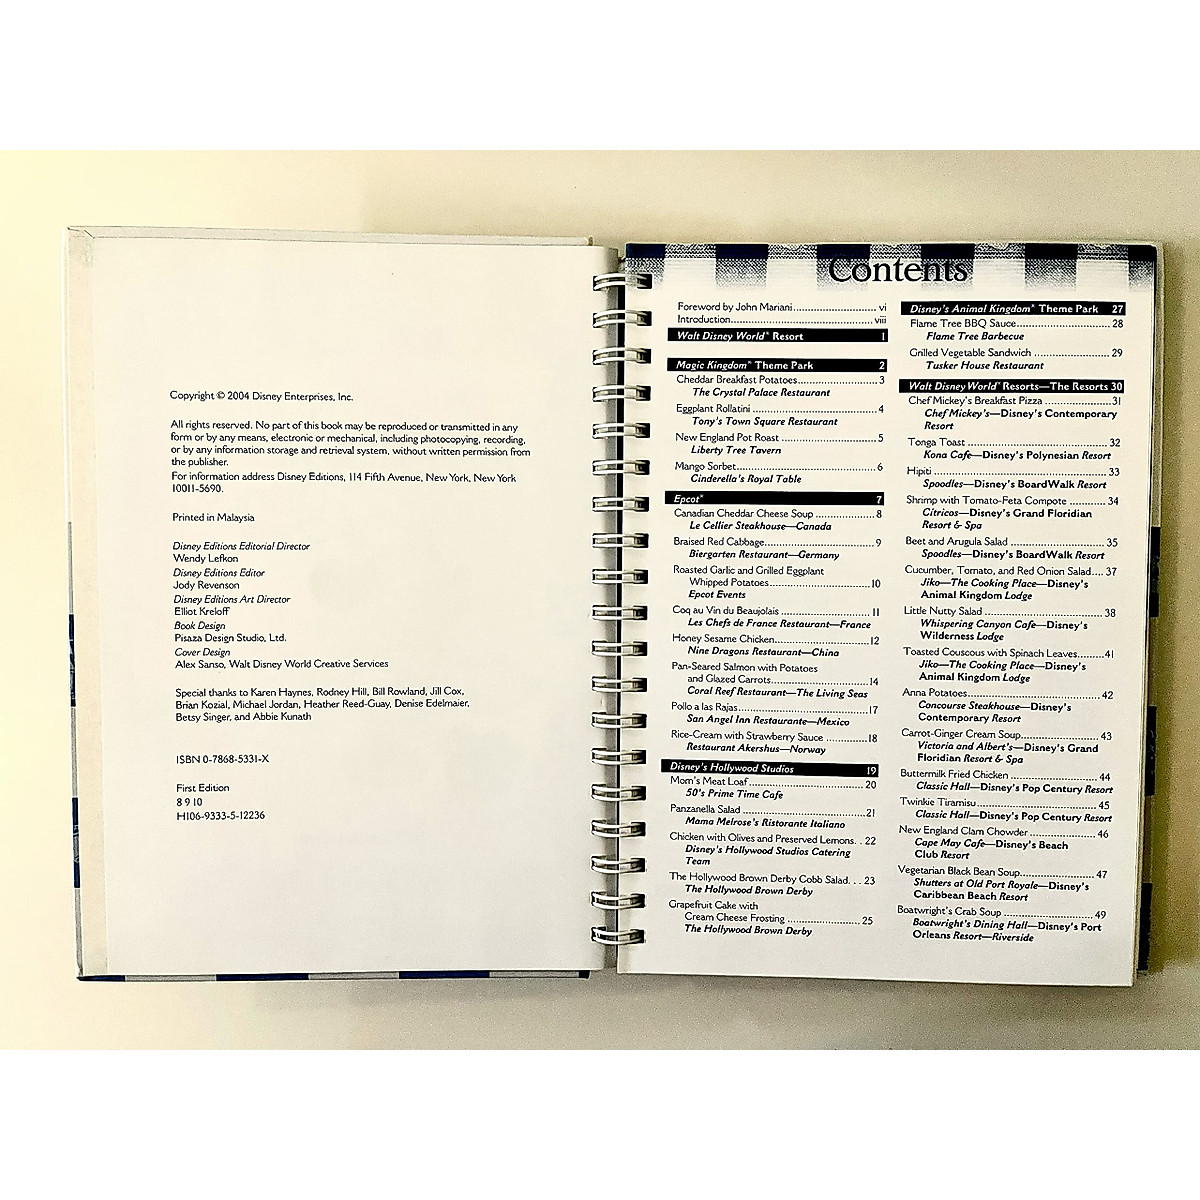 Copyright © 2004 Disney Enterprises, Inc.
All rights reserved. No part of this book may be reproduced or transmitted in any
form or by any means, electronic or mechanical, including photocopying, recording,
or by any information storage and retrieval system, without written permission from
the publisher.
For information address Disney Editions, 114 Fifth Avenue, New York, New York
10011-5690.
Printed in Malaysia
Disney Editions Editorial Director
Wendy Lefkon
Disney Editions Editor
Jody Revenson
Disney Editions Art Director
Elliot Kreloff
Book Design
Pisaza Design Studio, Ltd.
Cover Design
Alex Sanso, Walt Disney World Creative Services
Special thanks to Karen Haynes, Rodney Hill, Bill Rowland, Jill Cox,
Brian Kozial, Michael Jordan, Heather Reed-Guay, Denise Edelmaier,
Betsy Singer, and Abbie Kunath
ISBN 0-7868-5331-X
First Edition
8 9 10
H106-9333-5-12236
Contents
Foreword by John Mariani............................ vi
Introduction.................................................. viii
Walt Disney World® Resort 1
Magic Kingdom® Theme Park 2
Cheddar Breakfast Potatoes............................3
The Crystal Palace Restaurant
Eggplant Rollatini ...........................................4
Tony's Town Square Restaurant
New England Pot Roast .................................5
Liberty Tree Tavern
Mango Sorbet.................................................6
Cinderella's Royal Table
Epcot® 7
Canadian Cheddar Cheese Soup .....................8
Le Cellier Steakhouse—Canada
Braised Red Cabbage......................................9
Biergarten Restaurant—Germany
Roasted Garlic and Grilled Eggplant
Whipped Potatoes...................................10
Epcot Events
Coq au Vin du Beaujolais ...............................11
Les Chefs de France Restaurant—France
Honey Sesame Chicken.................................12
Nine Dragons Restaurant—China
Pan-Seared Salmon with Potatoes
and Glazed Carrots..................................14
Coral Reef Restaurant—The Living Seas
Pollo a las Rajas.............................................17
San Angel Inn Restaurante—Mexico
Rice-Cream with Strawberry Sauce ...............18
Restaurant Akershus—Norway
Disney's Hollywood Studios 19
Mom's Meat Loaf..........................................20
50's Prime Time Cafe
Panzanella Salad ............................................21
Mama Melrose's Ristorante Italiano
Chicken with Olives and Preserved Lemons. . 22
Disney's Hollywood Studios Catering
Team
The Hollywood Brown Derby Cobb Salad. . . 23
The Hollywood Brown Derby
Grapefruit Cake with
Cream Cheese Frosting ..........................25
The Hollywood Brown Derby
Disney's Animal Kingdom® Theme Park 27
Flame Tree BBQ Sauce.................................28
Flame Tree Barbecue
Grilled Vegetable Sandwich ..........................29
Tusker House Restaurant
Walt Disney World® Resorts—The Resorts 30
Chef Mickey's Breakfast Pizza .......................31
Chef Mickey's—Disney's Contemporary
Resort
Tonga Toast .................................................32
Kona Cafe—Disney's Polynesian Resort
Hipiti ............................................................33
Spoodles—Disney's BoardWalk Resort
Shrimp with Tomato-Feta Compote .............34
Cítricos—Disney's Grand Floridian
Resort & Spa
Beet and Arugula Salad .................................35
Spoodles—Disney's BoardWalk Resort
Cucumber, Tomato, and Red Onion Salad....37
Jiko—The Cooking Place—Disney's
Animal Kingdom Lodge
Little Nutty Salad .........................................38
Whispering Canyon Cafe—Disney's
Wilderness Lodge
Toasted Couscous with Spinach Leaves.........41
Jiko—The Cooking Place—Disney's
Animal Kingdom Lodge
Anna Potatoes..............................................42
Concourse Steakhouse—Disney's
Contemporary Resort
Carrot-Ginger Cream Soup...........................43
Victoria and Albert's—Disney's Grand
Floridian Resort & Spa
Buttermilk Fried Chicken ..............................44
Classic Hall—Disney's Pop Century Resort
Twinkie Tiramisu..........................................45
Classic Hall—Disney's Pop Century Resort
New England Clam Chowder .......................46
Cape May Cafe—Disney's Beach
Club Resort
Vegetarian Black Bean Soup..........................47
Shutters at Old Port Royale—Disney's
Caribbean Beach Resort
Boatwright's Crab Soup ................................49
Boatwright's Dining Hall—Disney's Port
Orleans Resort—Riverside